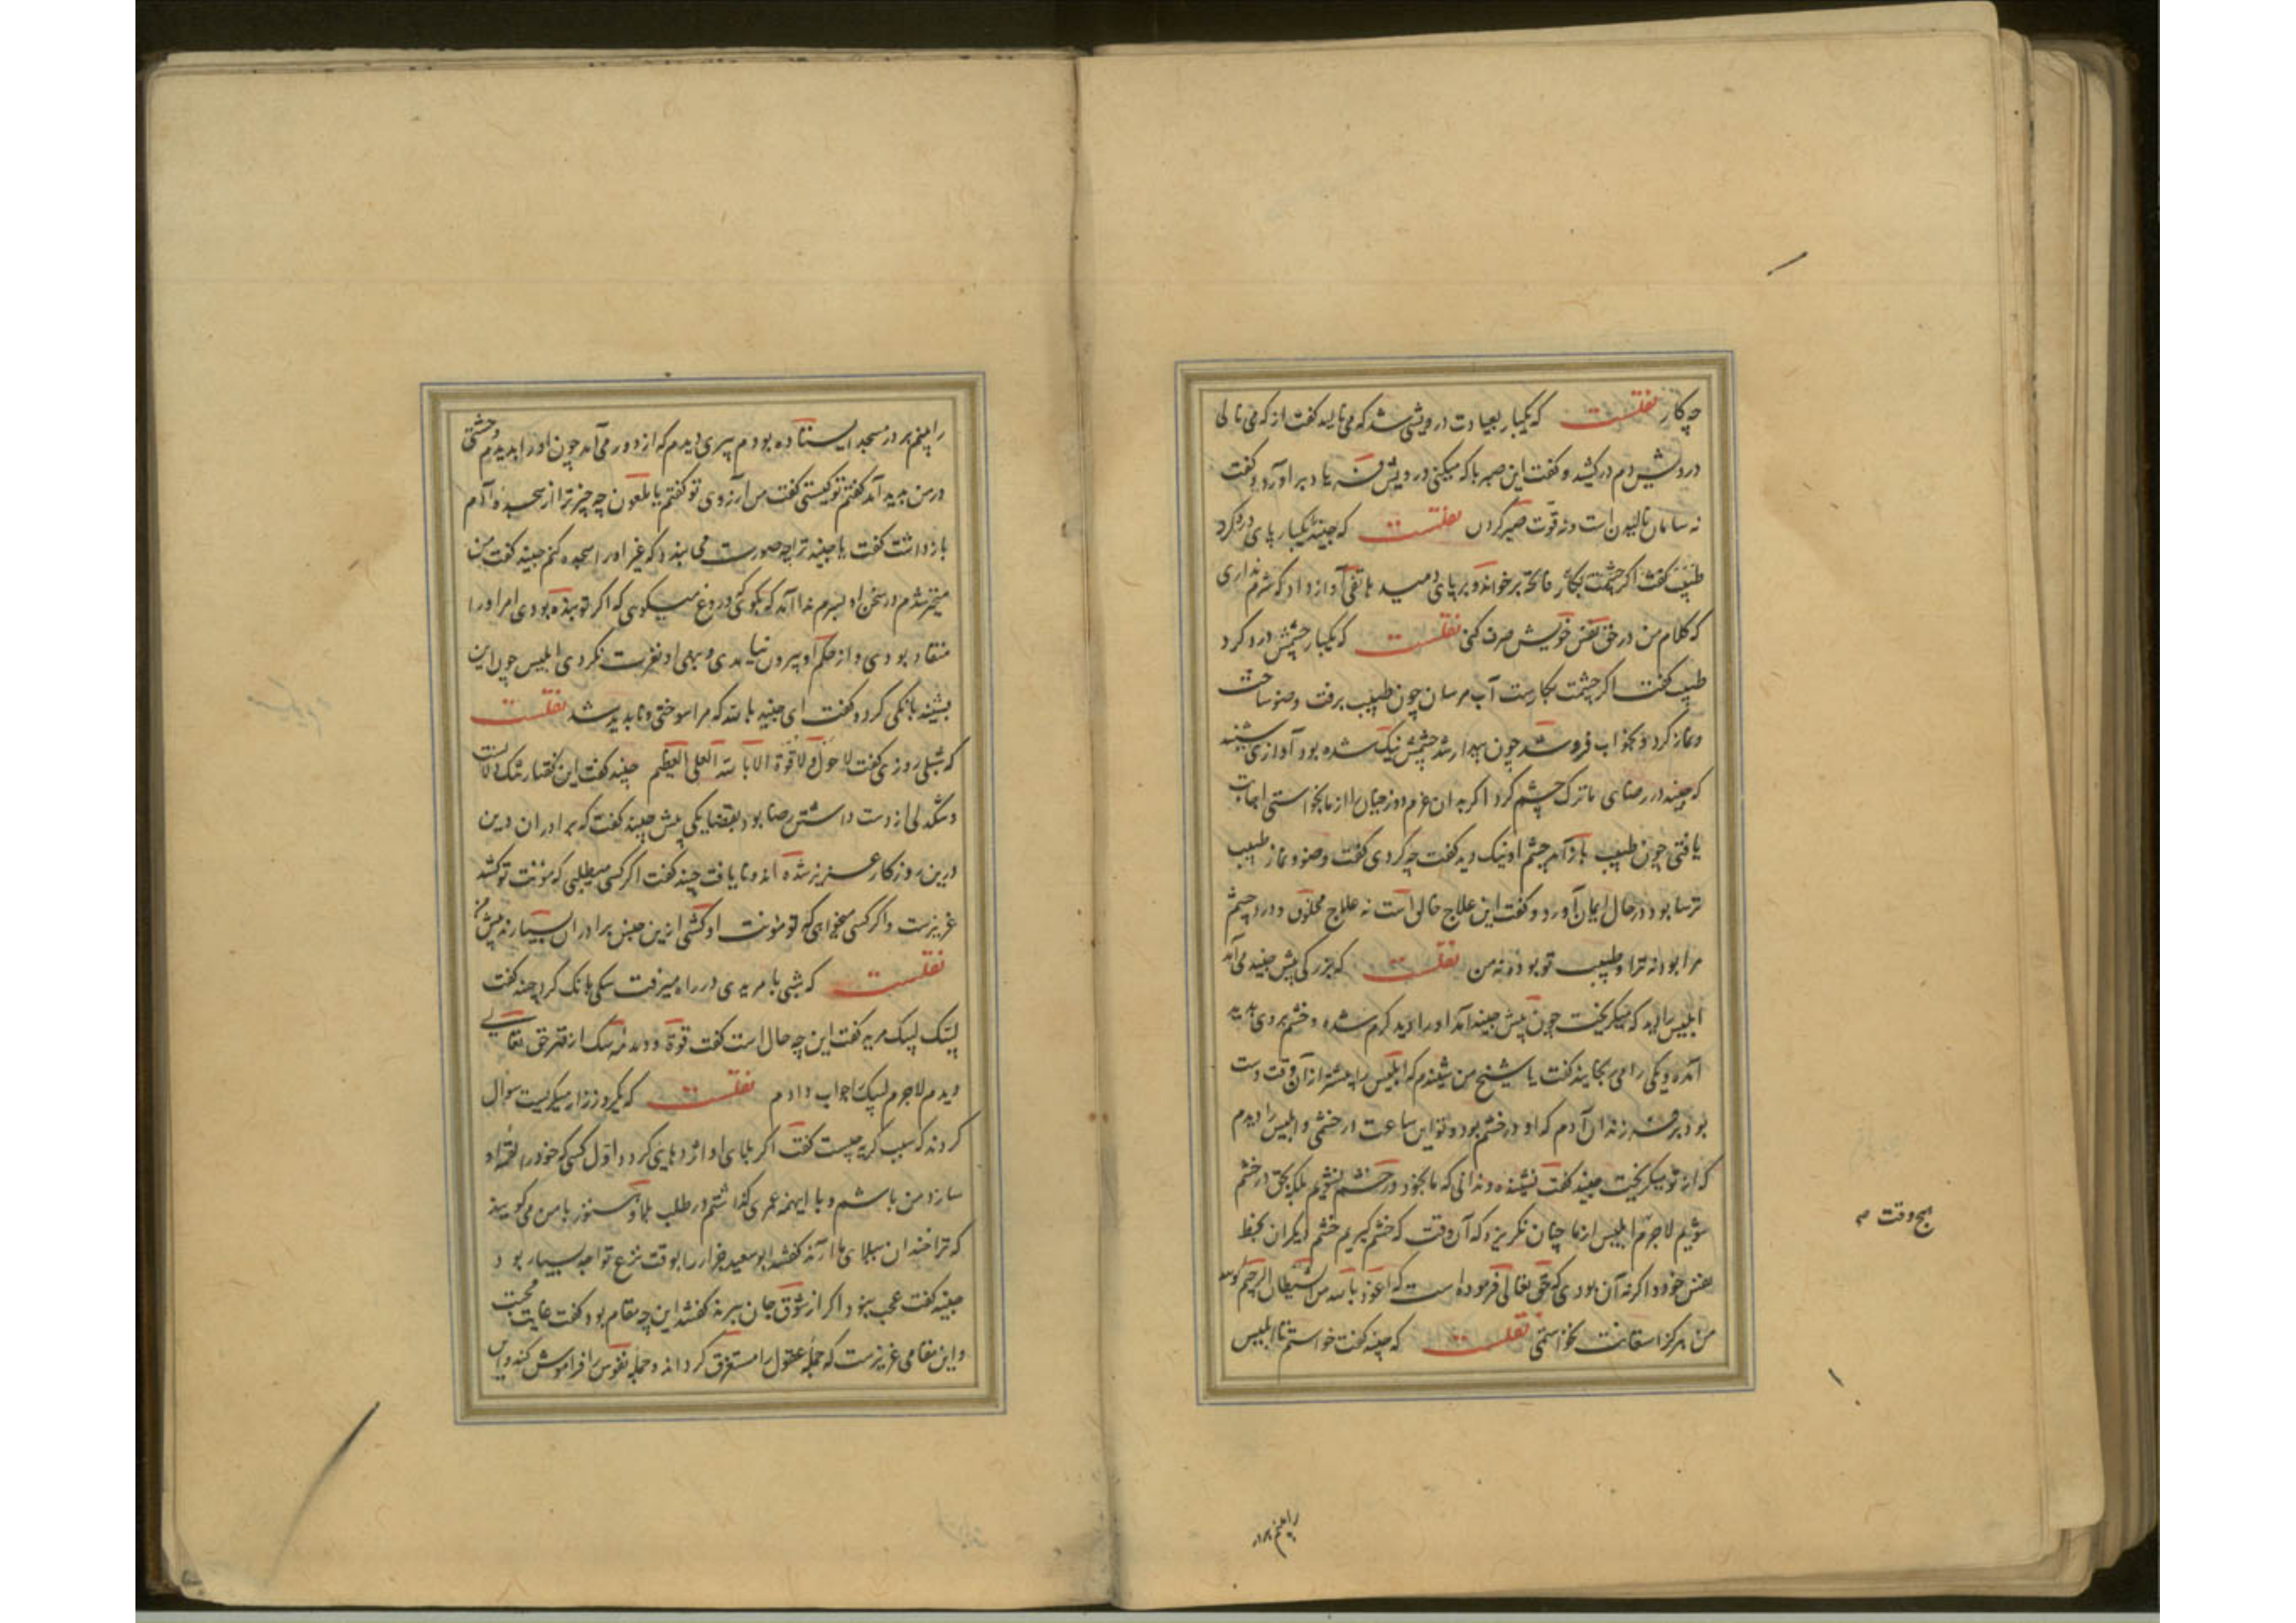 چه کار نقلست که یکبار بعیادت درویشی شد که می نالید گفت از که می نالی
درویش دم درکشید و گفت این صبر با که میکنی درویش فریاد برآورد و گفت
نه سامان نالیدن است و نه قوت صبر کردن نقلست که جنید را یکبار پای درد کرد
فاتحه برخواند و بر پای دمید هاتفی آواز داد که شرم نداری
که کلام من در حق نفس خویش صرف کنی نقلست که یکبار چشمش درد کرد
طبیب گفت اگر چشمت بکارست آب مرسان چون طبیب برفت وضو ساخت
و نماز کرد و بخواب فرو شد چون بیدار شد چشمش نیک شده بود آوازی شنید
که جنید در رضای ما ترک چشم کرد اگر بدان عزم دوزخیان را از ما بخواستی اجابت
یافتی چون طبیب باز آمد چشم او نیک دید گفت چه کردی گفت وضو و نماز طبیب
ترسا بود در حال ایمان آورد و گفت این علاج خالق است نه علاج مخلوق و درد چشم
مرا بود نه ترا و طبیب تو بودی نه من نقلست که بزرگی پیش جنید می آمد
ابلیس را دید که میگریخت چون پیش جنید آمد او را دید گرم شده و خشم بروی پدید
آمده و یکی را می رنجاند گفت یا شیخ من شنیدم که ابلیس را بیشتر از آن وقت دست
بود بر فرزندان آدم که او در خشم بود و تو این ساعت در خشمی و ابلیس را دیدم
که از تو میگریخت جنید گفت نشنیده و ندانی که ما بخود در خشم نشویم بلکه بحق در خشم
شویم لاجرم ابلیس از ما چنان نگریزد که آن وقت که خشم گیریم خشم دیگران بحظ
نفس خود و اگر نه آن بودی که حق تعالی فرموده است که اعوذ بالله من الشیطان الرجیم گویید
من هرگز استعانت نخواستمی نقلست که جنید گفت خواستم تا ابلیس
هیچ وقت
را بینم بر در
را بینم بر در مسجد ایستاده بودم پیری دیدم که از دور می آمد چون او را بدیدم وحشتی
در من پدید آمد گفتم تو کیستی گفت من آرزوی تو گفتم یا ملعون چه چیز ترا از سجده آدم
بازداشت گفت یا جنید ترا چه صورت می بندد که غیر او را سجده کنم جنید گفت من
متحیر شدم در سخن او بسرم ندا آمد که بگوی که دروغ میگوی که اگر تو بنده بودی امر او را
منقاد بودی و از حکم او بیرون نیامدی و بنهی او تقرب نکردی ابلیس چون این
بشنید بانگی کرد و گفت ای جنید بالله که مرا سوختی و ناپدید شد نقلست
که شبلی روزی گفت لا حول و لا قوة الا بالله العلی العظیم جنید گفت این گفتار تنگ دلانست
و تنگدلی از دست داشتن رضا بود بقضا یکی پیش جنید گفت که برادران دین
درین روزگار عزیز شده اند و نایافت جنید گفت اگر کسی میطلبی که مؤنت تو کشد
عزیزست و اگر کسی میخواهی که تو مؤنت او کشی ازین جنس برادران بسیارند پیش من
نقلست که شبی با مریدی در راه میرفت سگی بانگ کرد جنید گفت
لبیک لبیک مرید گفت این چه حال است گفت قوة و دمدمه سگ از قهر حق تعالی
دیدم لاجرم لبیک جواب دادم نقلست که یکروز زار میگریست سوال
کردند که سبب گریه چیست گفت اگر بلای او اژدهایی گردد اول کسی که خود را لقمه او
سازد من باشم و با اینهمه عمری گذاشتم در طلب بلا و هنوز با من می گویند
که ترا چندان ببلای ما ارزد گفتند ابوسعید خراز را بوقت نزع تواجد بسیار بود
جنید گفت عجب نبود اگر از شوق جان بپرد گفتند این چه مقام بود گفت غایت محبت
و این مقامی عزیزست که جمله عقول را مستغرق گرداند و جمله نفوس را فراموش کند و این